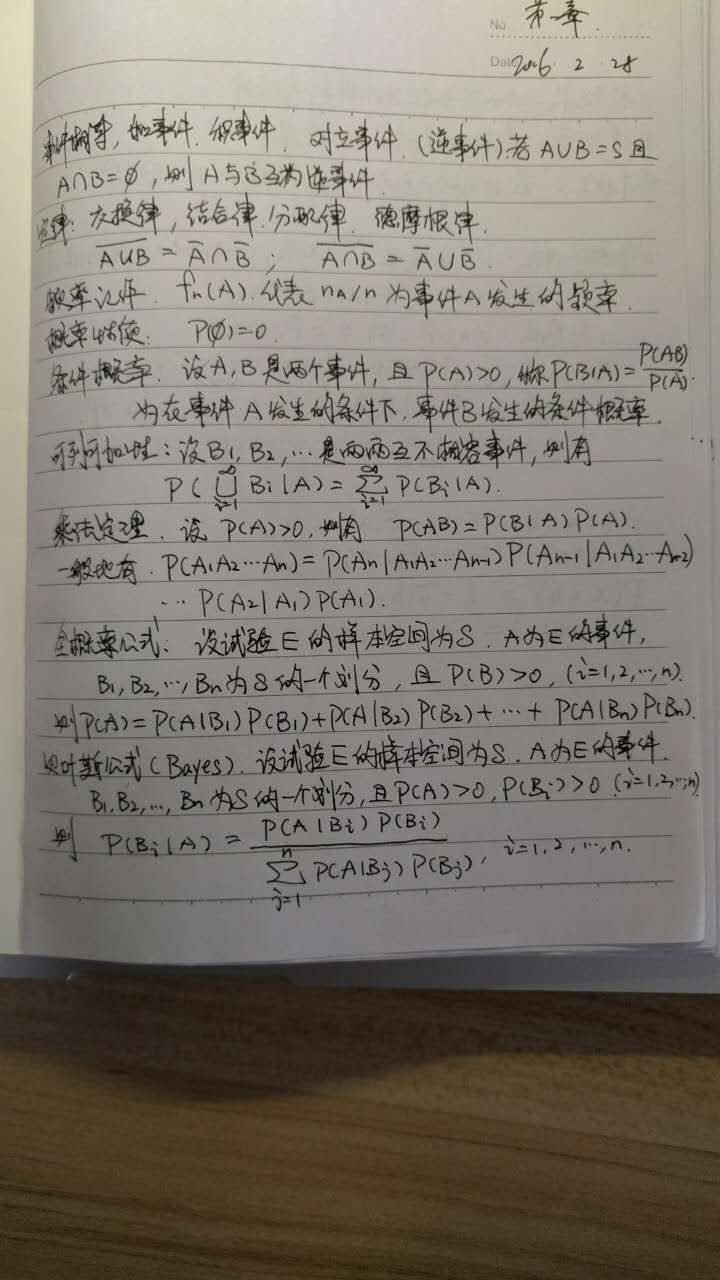 No. 第一章.
Date 2016 2 28
事件相等, 和事件. 积事件. 对立事件. (逆事件):若 A∪B=S且
A∩B=∅, 则 A与B互为逆事件.
定律: 交换律, 结合律. 分配律. 德摩根律.
\overline{A∪B} = \overline{A}∩\overline{B} ; \overline{A∩B} = \overline{A}∪\overline{B}.
频率记作. fn(A). 代表 nA/n 为事件A发生的频率.
概率性质: P(∅)=0.
条件概率. 设A,B是两个事件, 且 P(A)>0, 称 P(B|A)=P(AB)/P(A).
为在事件 A 发生的条件下, 事件B发生的条件概率.
可列可加性: 设B1, B2, … 是两两互不相容事件, 则有
P(\bigcup_{i=1}^{∞} Bi|A) = \sum_{i=1}^{∞} P(Bi|A).
乘法定理. 设 P(A)>0, 则有 P(AB)=P(B|A)P(A).
一般地有. P(A1A2…An)=P(An|A1A2…An-1)P(An-1|A1A2…An-2)
… P(A2|A1)P(A1).
全概率公式: 设试验 E 的样本空间为S. A为E的事件,
B1, B2, …, Bn为S的一个划分, 且 P(B)>0, (i=1,2,…,n).
则P(A)=P(A|B1)P(B1)+P(A|B2)P(B2)+…+P(A|Bn)P(Bn).
贝叶斯公式(Bayes). 设试验E的样本空间为S. A为E的事件.
B1, B2, …, Bn为S的一个划分, 且P(A)>0, P(Bi)>0 (i=1,2,…,n)
则 P(Bi|A) = P(A|Bi)P(Bi) / \sum_{j=1}^{n} P(A|Bj)P(Bj), i=1,2,…,n.